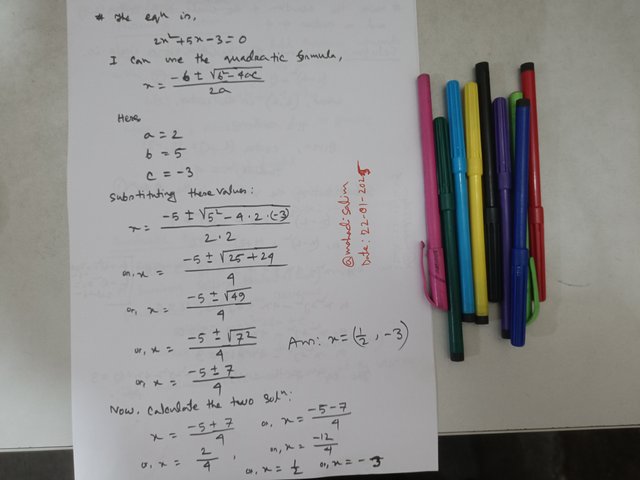 * The eqn is,
2x² + 5x - 3 = 0
I can use the quadratic formula,
x = (-b ± √(b² - 4ac)) / 2a
Here
a = 2
b = 5
c = -3
Substituting these values:
x = (-5 ± √(5² - 4·2·(-3))) / 2·2
or, x = (-5 ± √(25 + 24)) / 4
or, x = (-5 ± √49) / 4
or, x = (-5 ± √7²) / 4
or, x = (-5 ± 7) / 4
Now, calculate the two solⁿ:
x = (-5 + 7) / 4 or, x = (-5 - 7) / 4
or, x = 2/4, or, x = -12/4
or, x = 1/2 or, x = -3
Ans: x = (1/2, -3)
@mohad.salim
Date: 22-01-2025